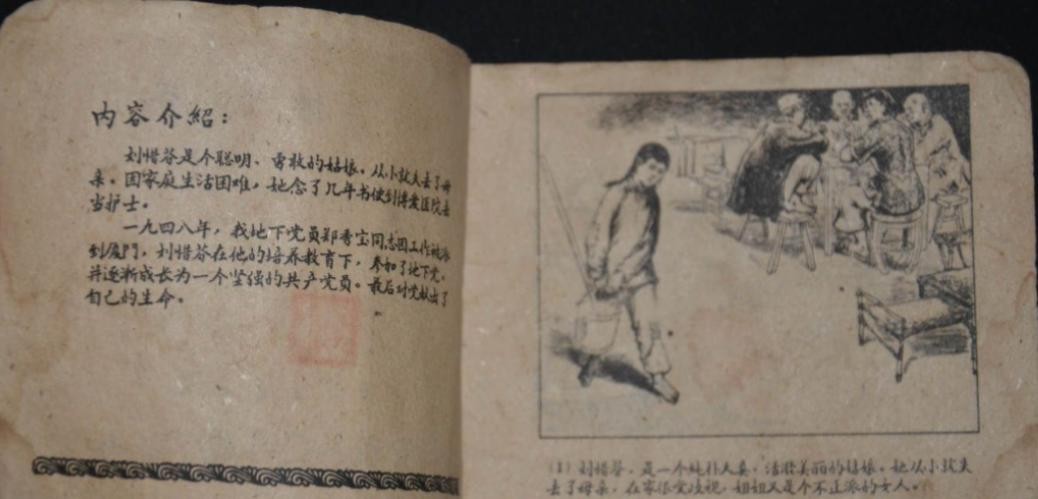 内容介紹：
刘惜芬是个聪明、勇敢的姑娘。从小就失去了母
亲。因家庭生活困难，她念了几年书便到博爱医院去
当护士。
一九四八年，我地下党员郑秀宝同志因工作被派
到厦門，刘惜芬在他的培养教育下，参加了地下党，
并逐渐成长为一个坚强的共产党员。最后对党献出了
自己的生命。
(1) 刘惜芬，是一个純朴天眞，活潑美丽的姑娘。她从小就失
去了母亲，在家很受歧视，姐姐又是个不正派的女人。